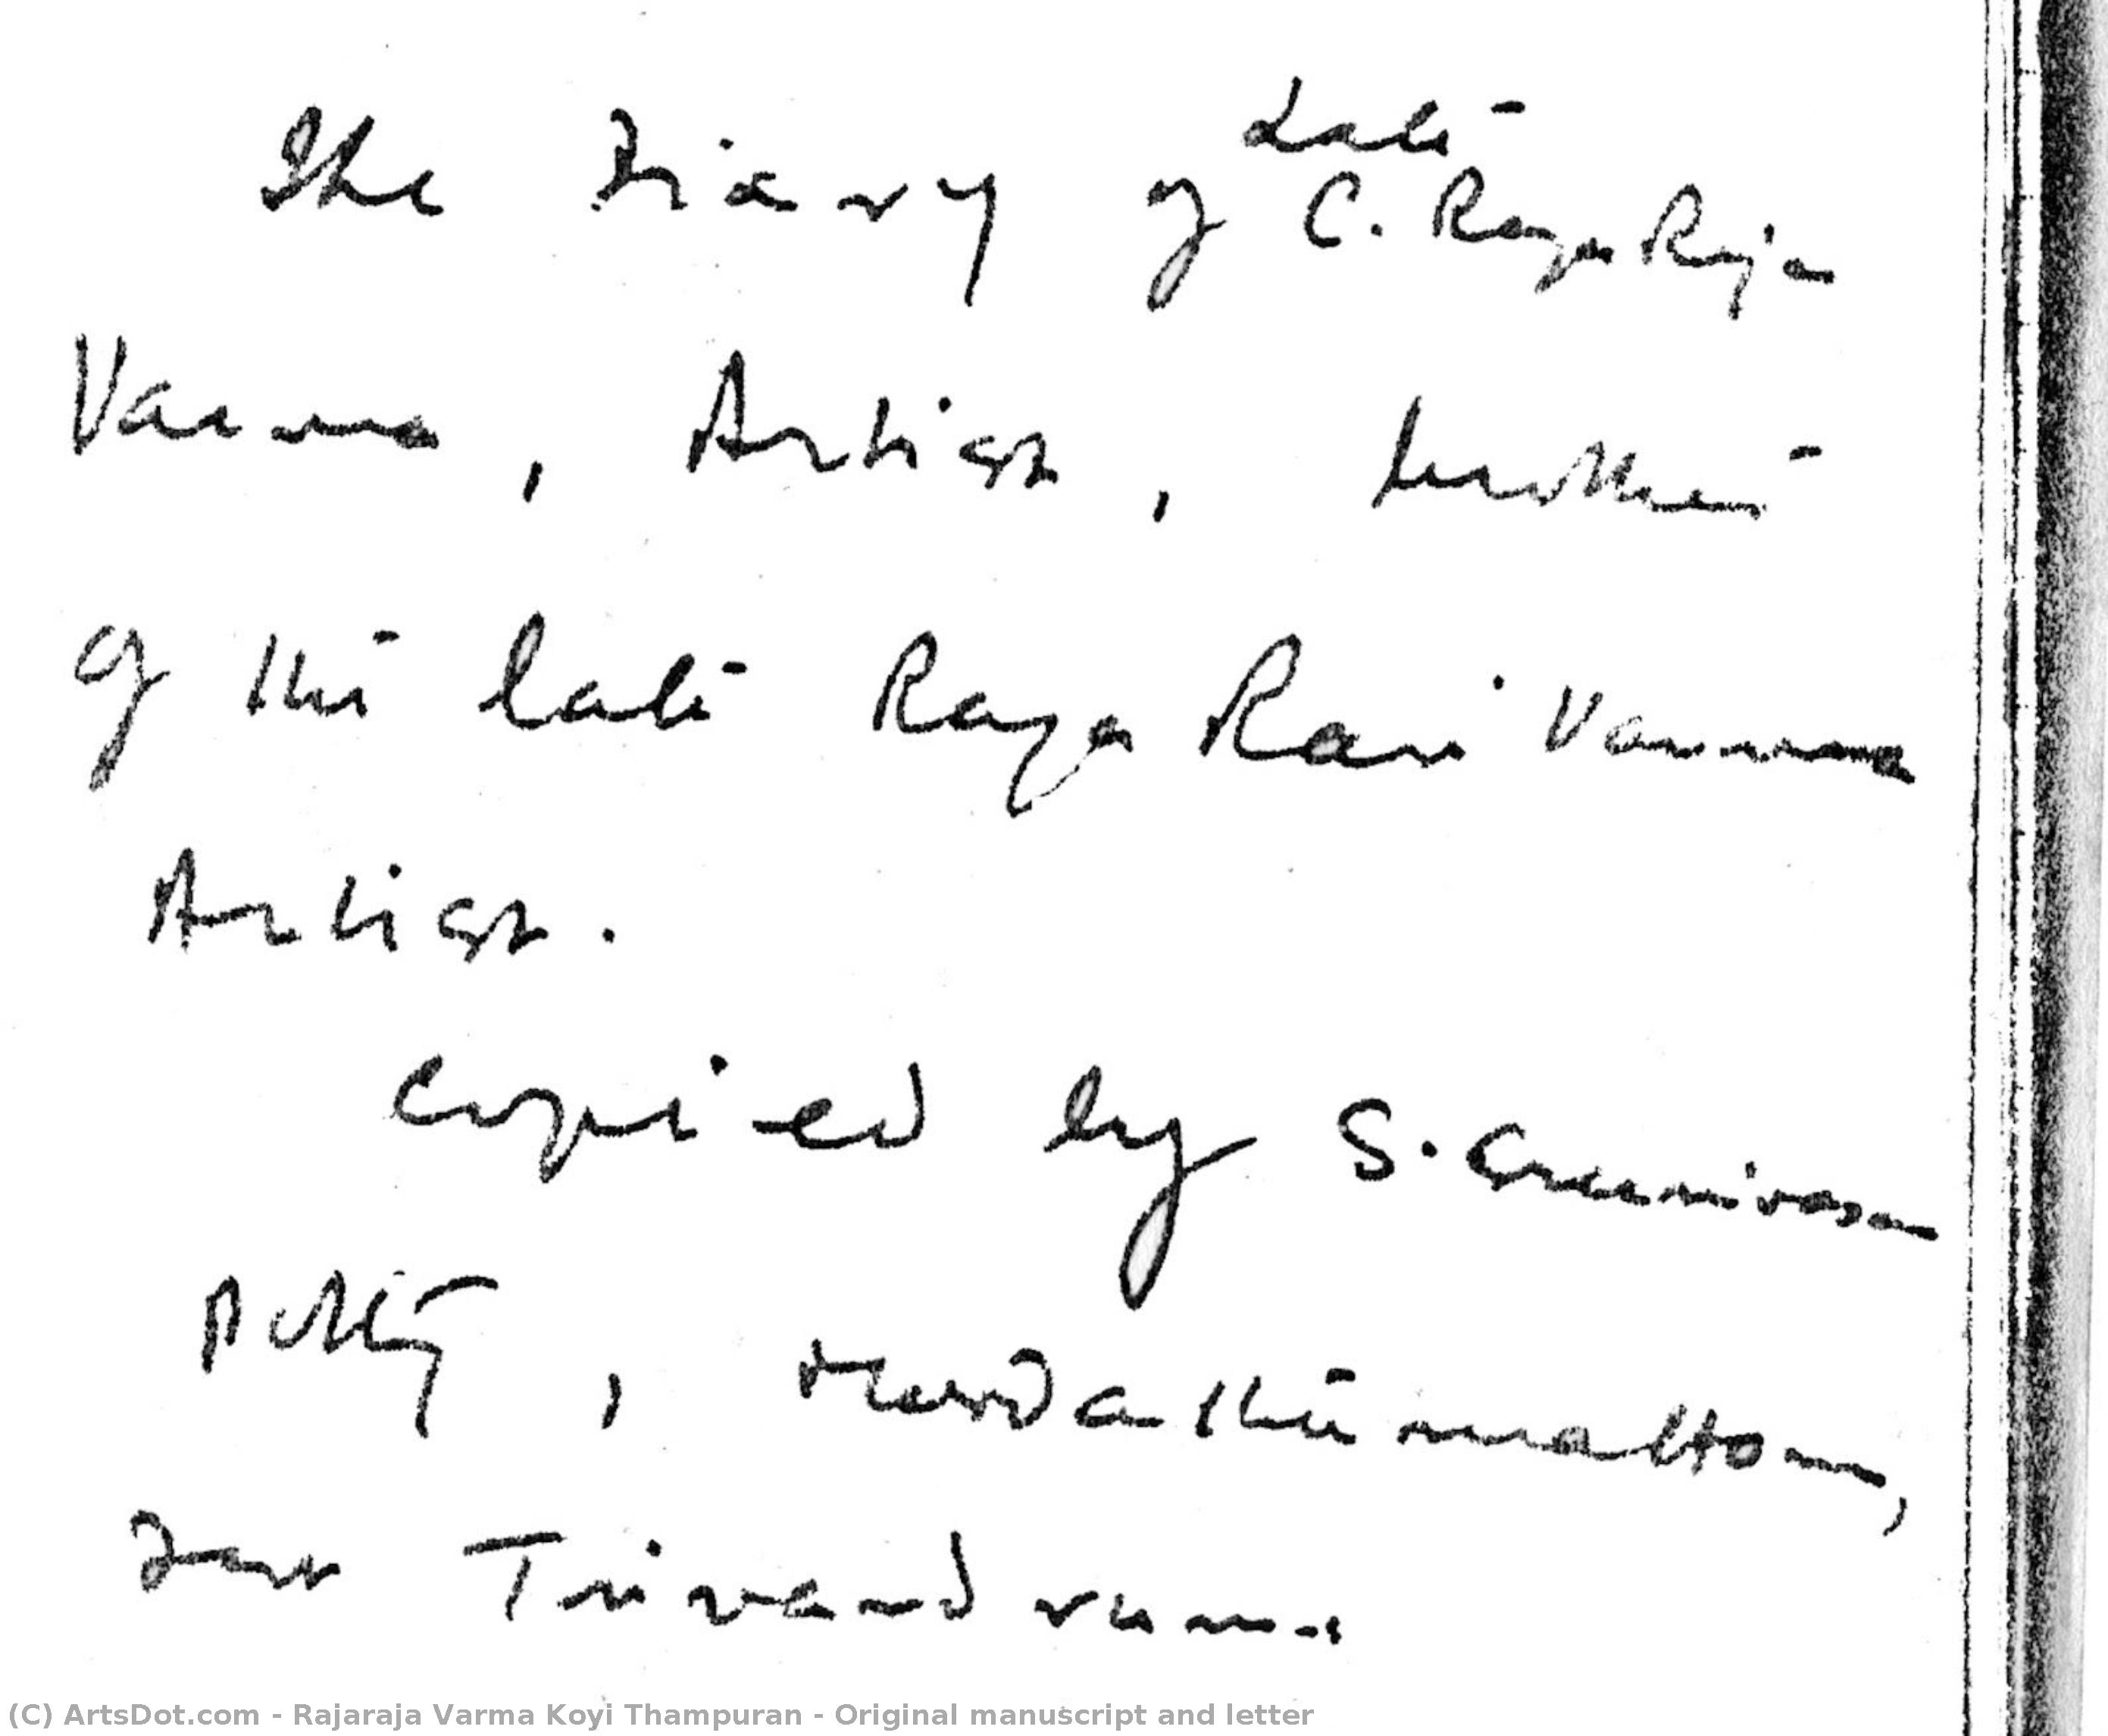 Late
The Diary of C. Raja Raja
Varma, Artist, brother
of the late Raja Ravi Varma
Artist.
Copied by S. Sreenivasan
Potty,
Fort Trivandrum.
(C) ArtsDot.com - Rajaraja Varma Koyi Thampuran - Original manuscript and letter